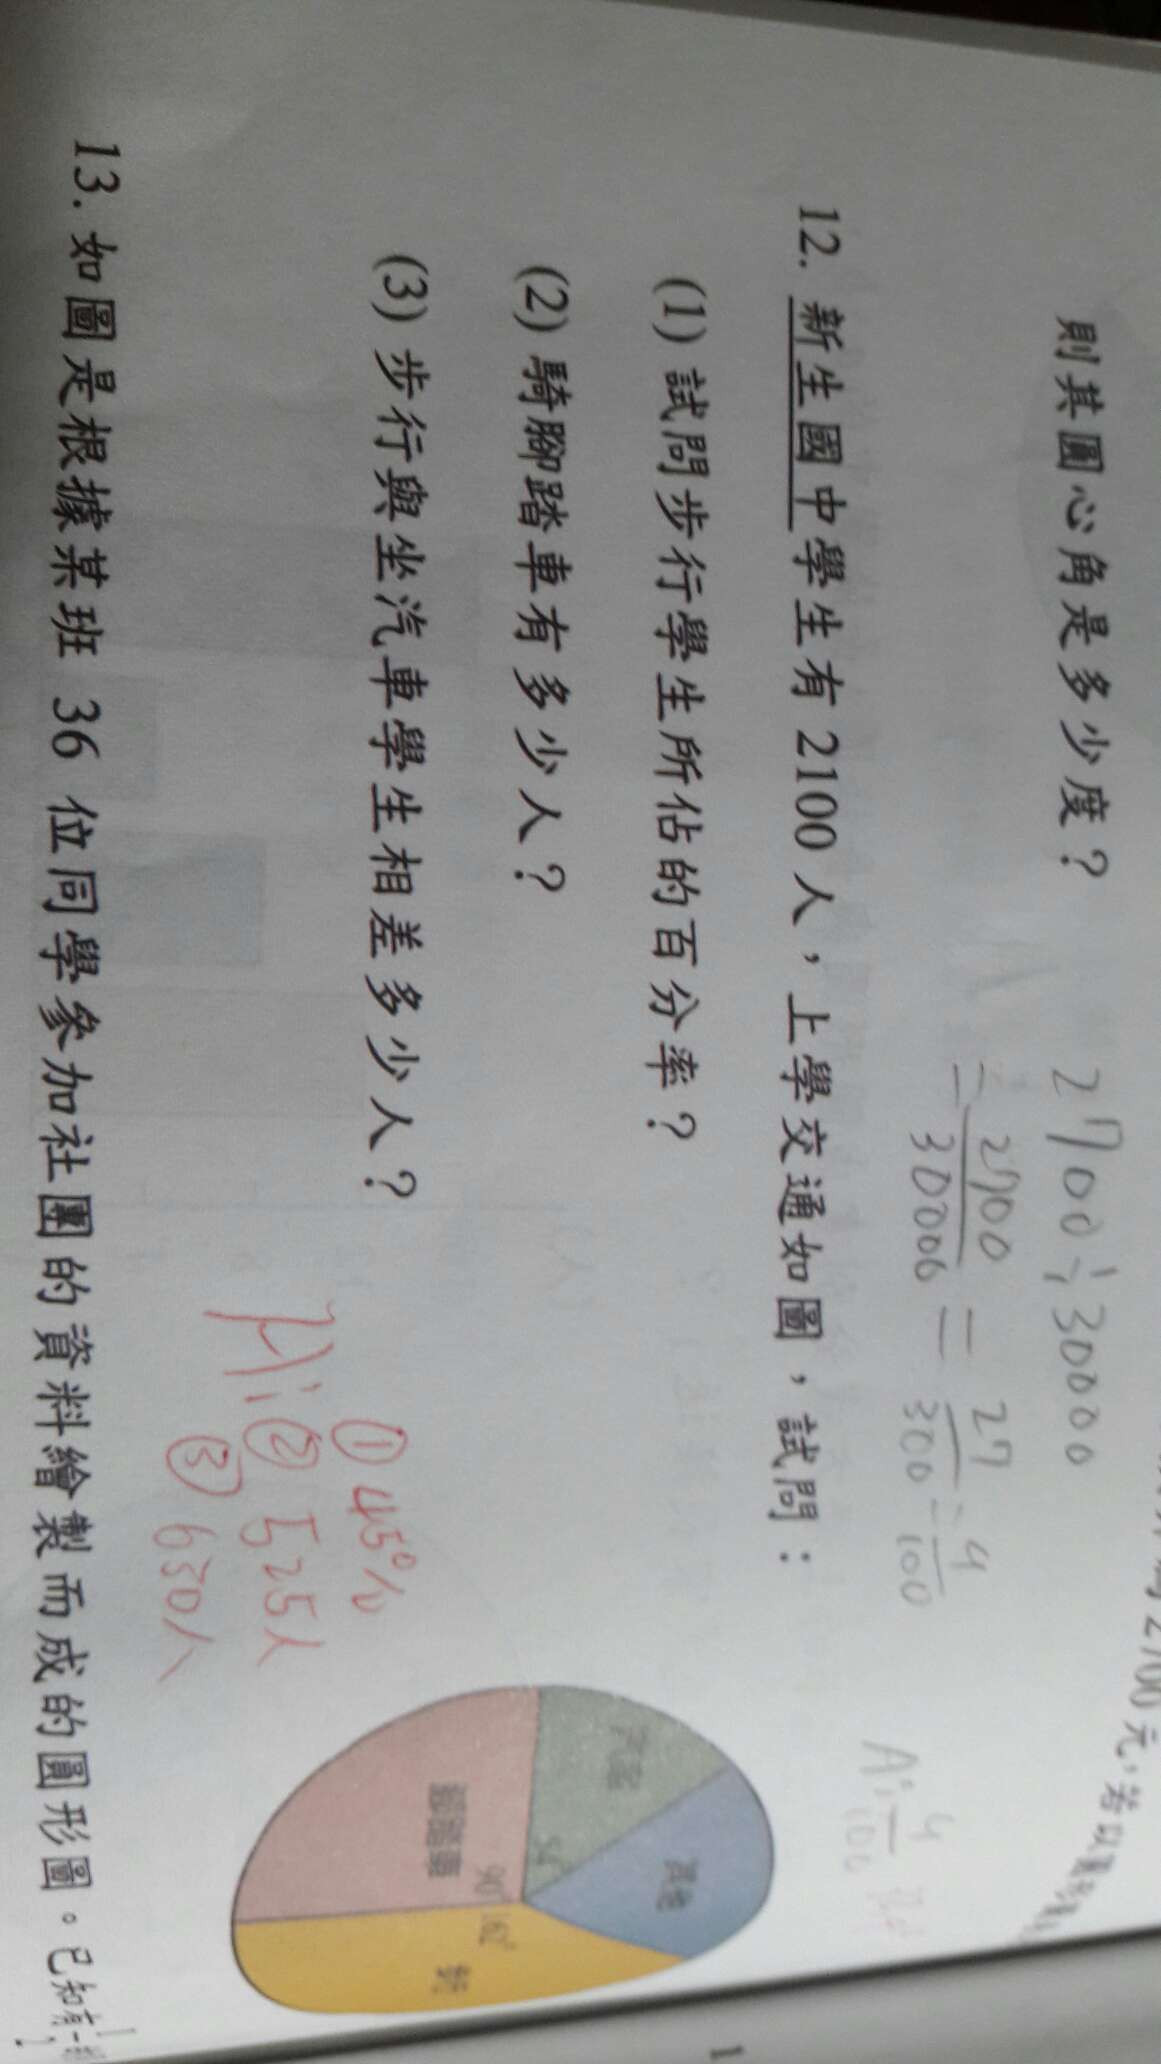 2700元，若以圓形圖
則其圓心角是多少度？
2700÷30000
=2700/30000=27/300=9/100
A:9/100
12. 新生國中學生有 2100 人，上學交通如圖，試問：
(1) 試問步行學生所佔的百分率？
(2) 騎腳踏車有多少人？
(3) 步行與坐汽車學生相差多少人？
① 45%
A:② 525人
③ 630人
汽車
其他
腳踏車
步行
54°
90°
162°
13. 如圖是根據某班 36 位同學參加社團的資料繪製而成的圓形圖。已知有一
1